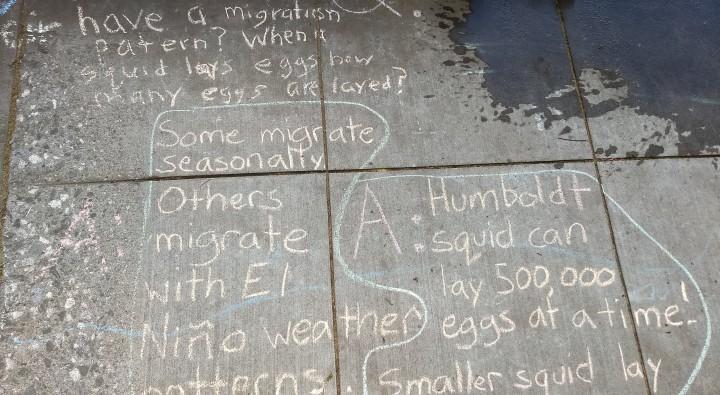 have a migration
patern? When a
squid lays eggs how
many eggs are layed?
Some migrate
seasonally
Others
migrate
with El
Niño weather
patterns.
A: Humboldt
squid can
lay 500,000
eggs at a time!
Smaller squid lay